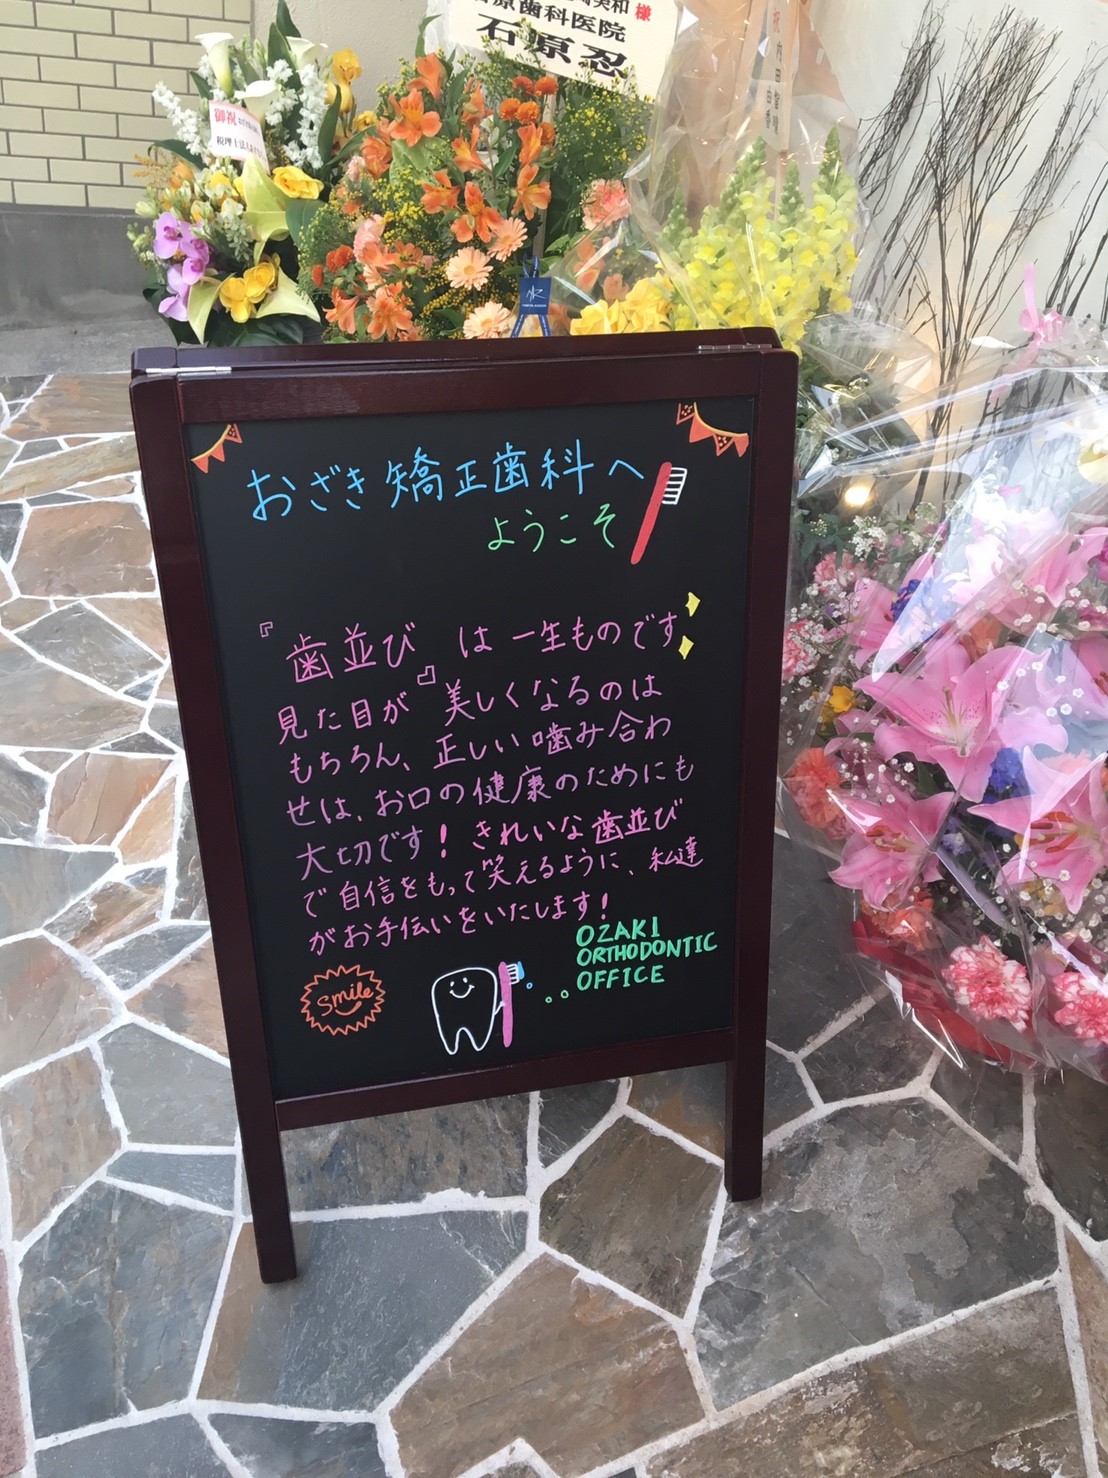 美和様
原歯科医院
石原忍
御祝
税理士法人
祝
おざき矯正歯科へ
ようこそ
『歯並び』は一生ものです
見た目が美しくなるのは
もちろん、正しい噛み合わ
せは、お口の健康のためにも
大切です！きれいな歯並び
で自信をもって笑えるように、私達
がお手伝いをいたします！
OZAKI
ORTHODONTIC
OFFICE
smile